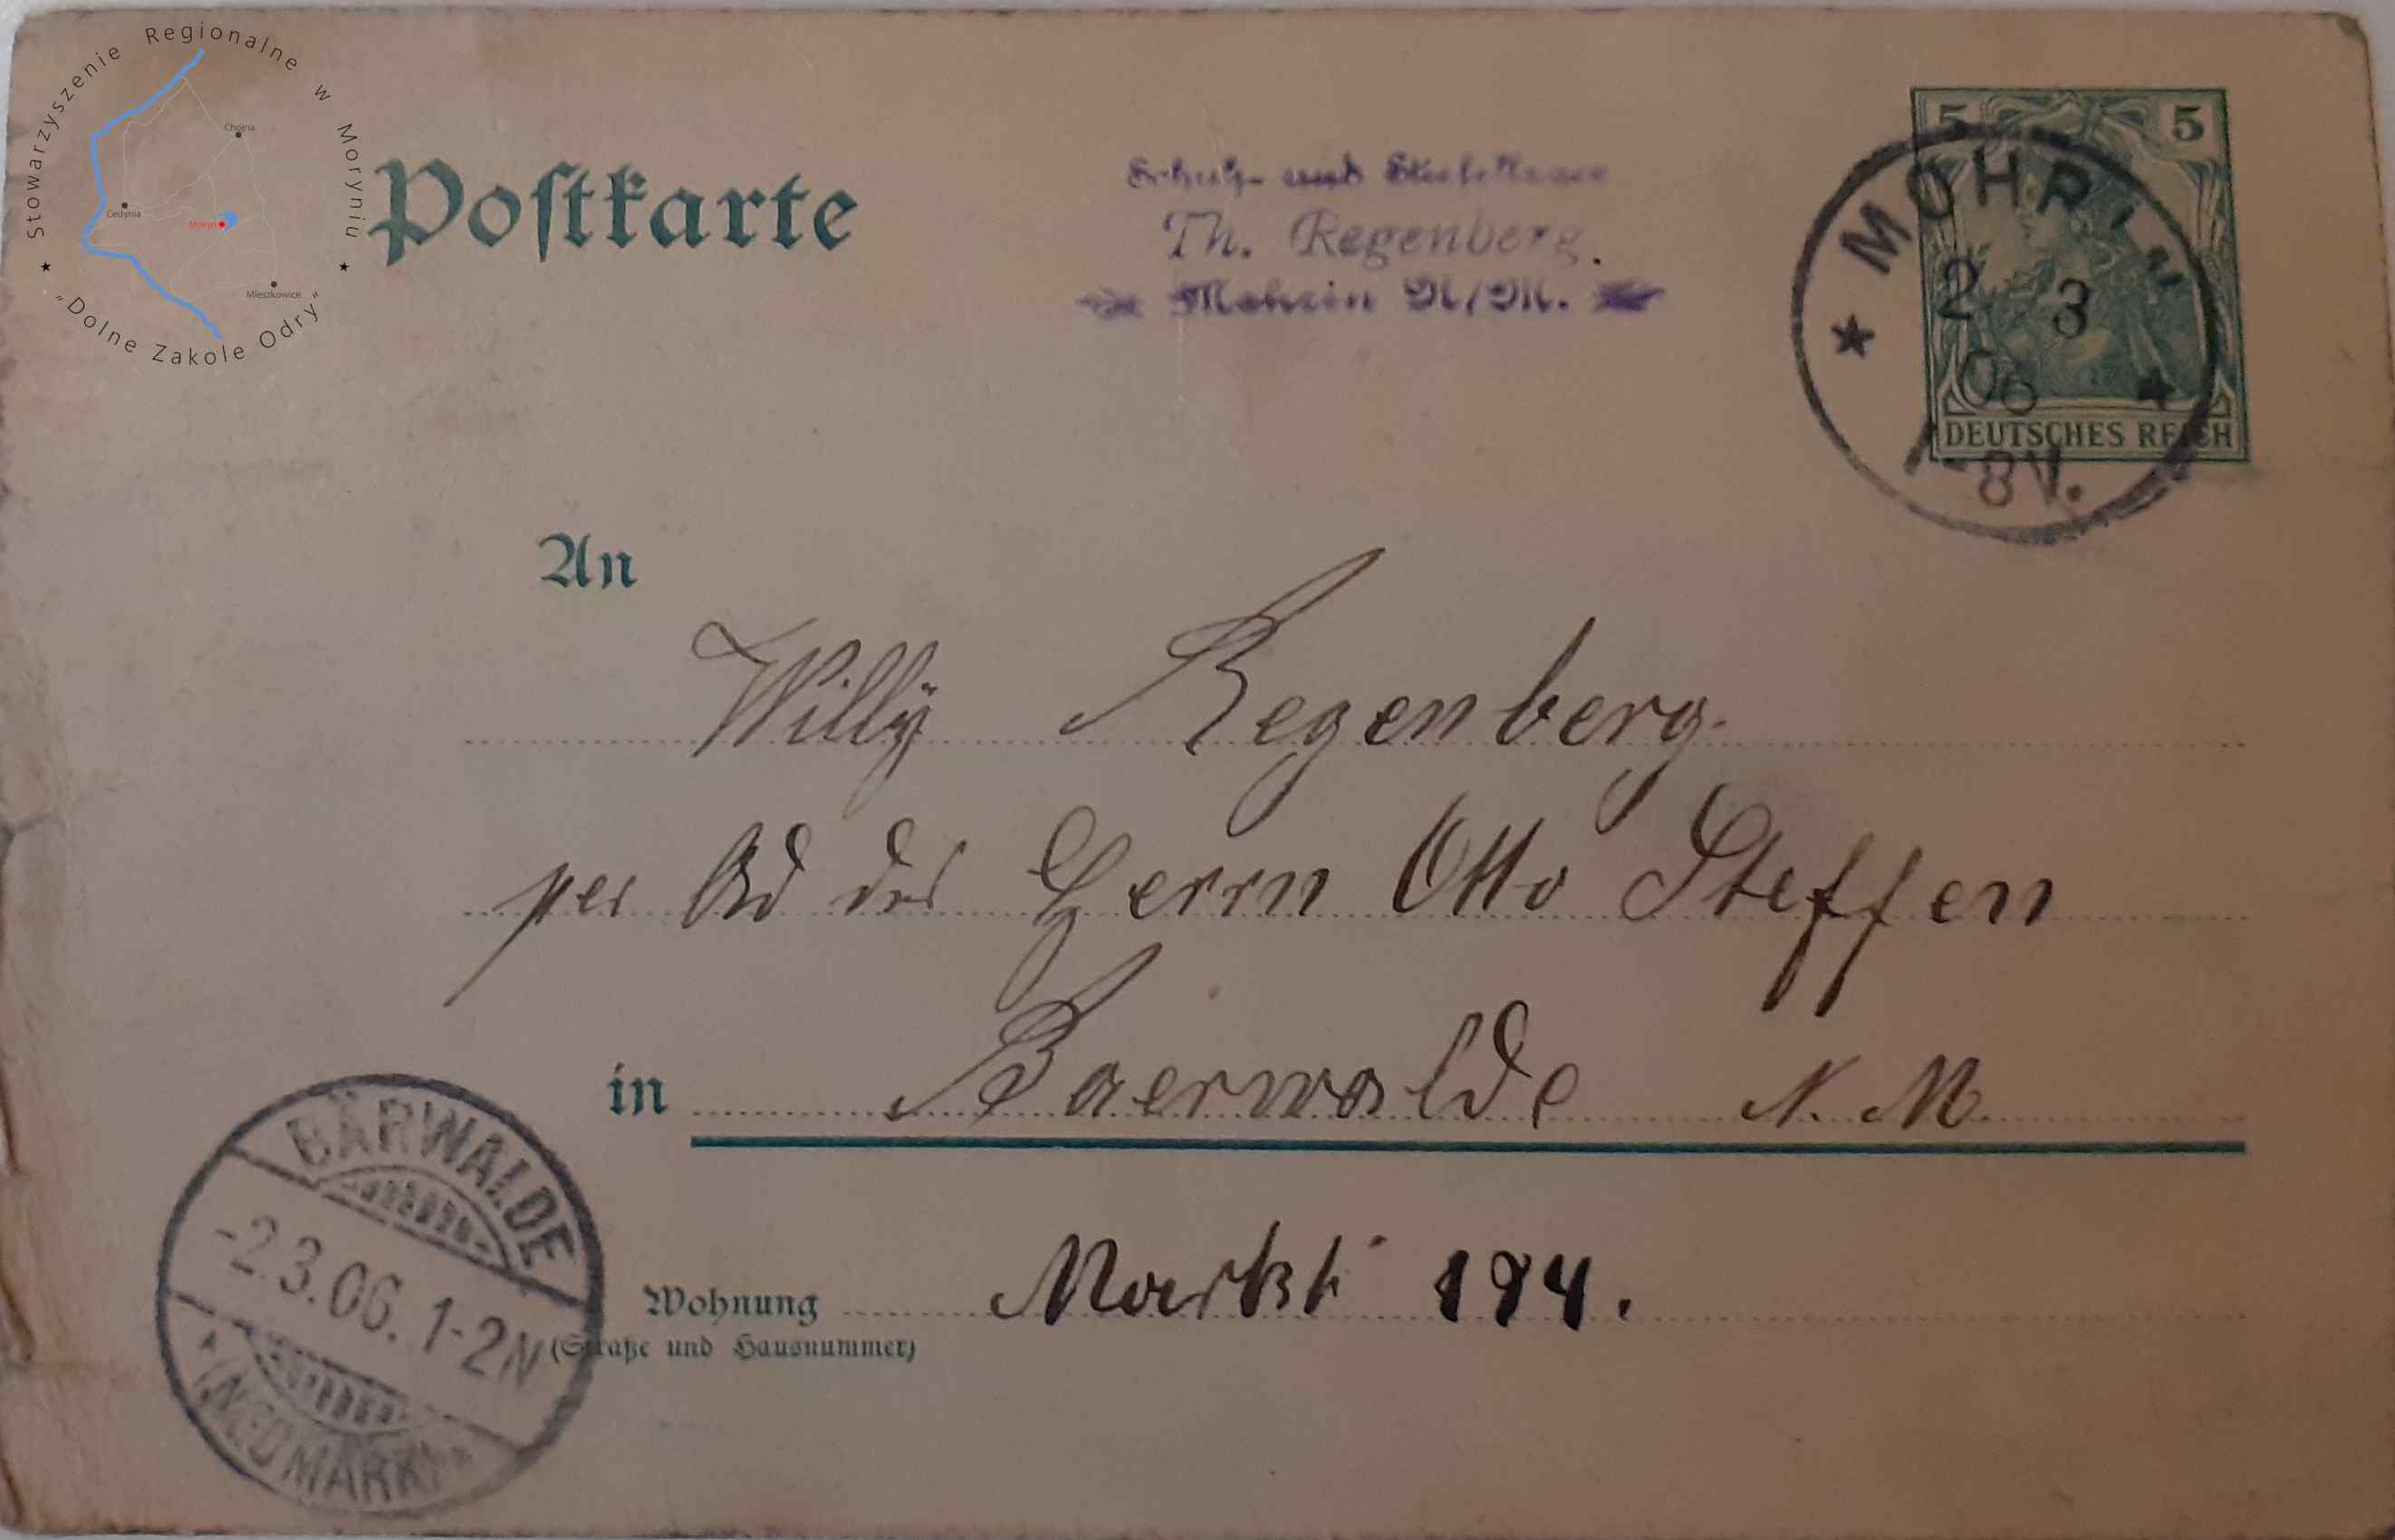 Stowarzyszenie Regionalne w Moryniu
„Dolne Zakole Odry”
Chojna
Cedynia
Moryń
Mieszkowice
Postkarte
Schuh- und
Th. Regenberg.
Mohrin N/M.
5 5
DEUTSCHES REICH
MOHRIN
2 3
06
7-8V.
An
Willy Regenberg.
per Ad des Herrn Otto Steffen
in Baerwalde N. M.
Wohnung Markt 194.
(Straße und Hausnummer)
BÄRWALDE
-2.3.06.1-2N
(NEUMARK)